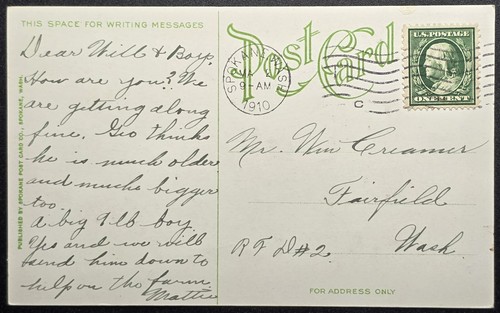 THIS SPACE FOR WRITING MESSAGES
Dear Will & Boys.
How are you? We
are getting along
fine, Geo thinks
he is much older
and much bigger
too.
a big 9 lb boy.
Yes and we will
send him down to
help on the farm
Mattie
PUBLISHED BY SPOKANE POST CARD CO., SPOKANE, WASH.
Post Card
SPOKANE, WASH.
9-AM
1910
C
U.S. POSTAGE
ONE CENT
Mr. Wm Creamer
Fairfield
R F D #2. Wash.
FOR ADDRESS ONLY